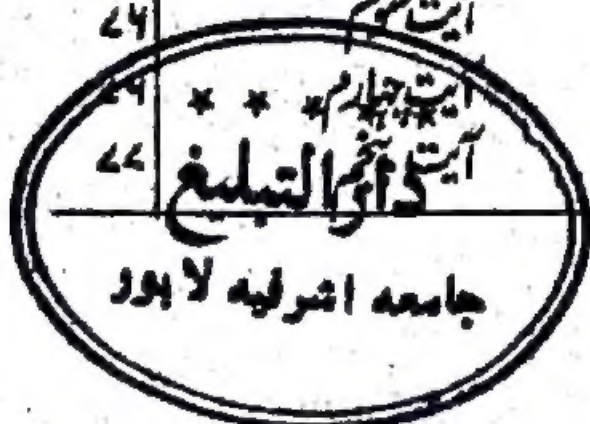 آیت سوم ۷۶
آیت چہارم ۷۶
* * *
آیت پنجم ۷۷
دار التبلیغ
جامعہ اشرفیہ لاہور